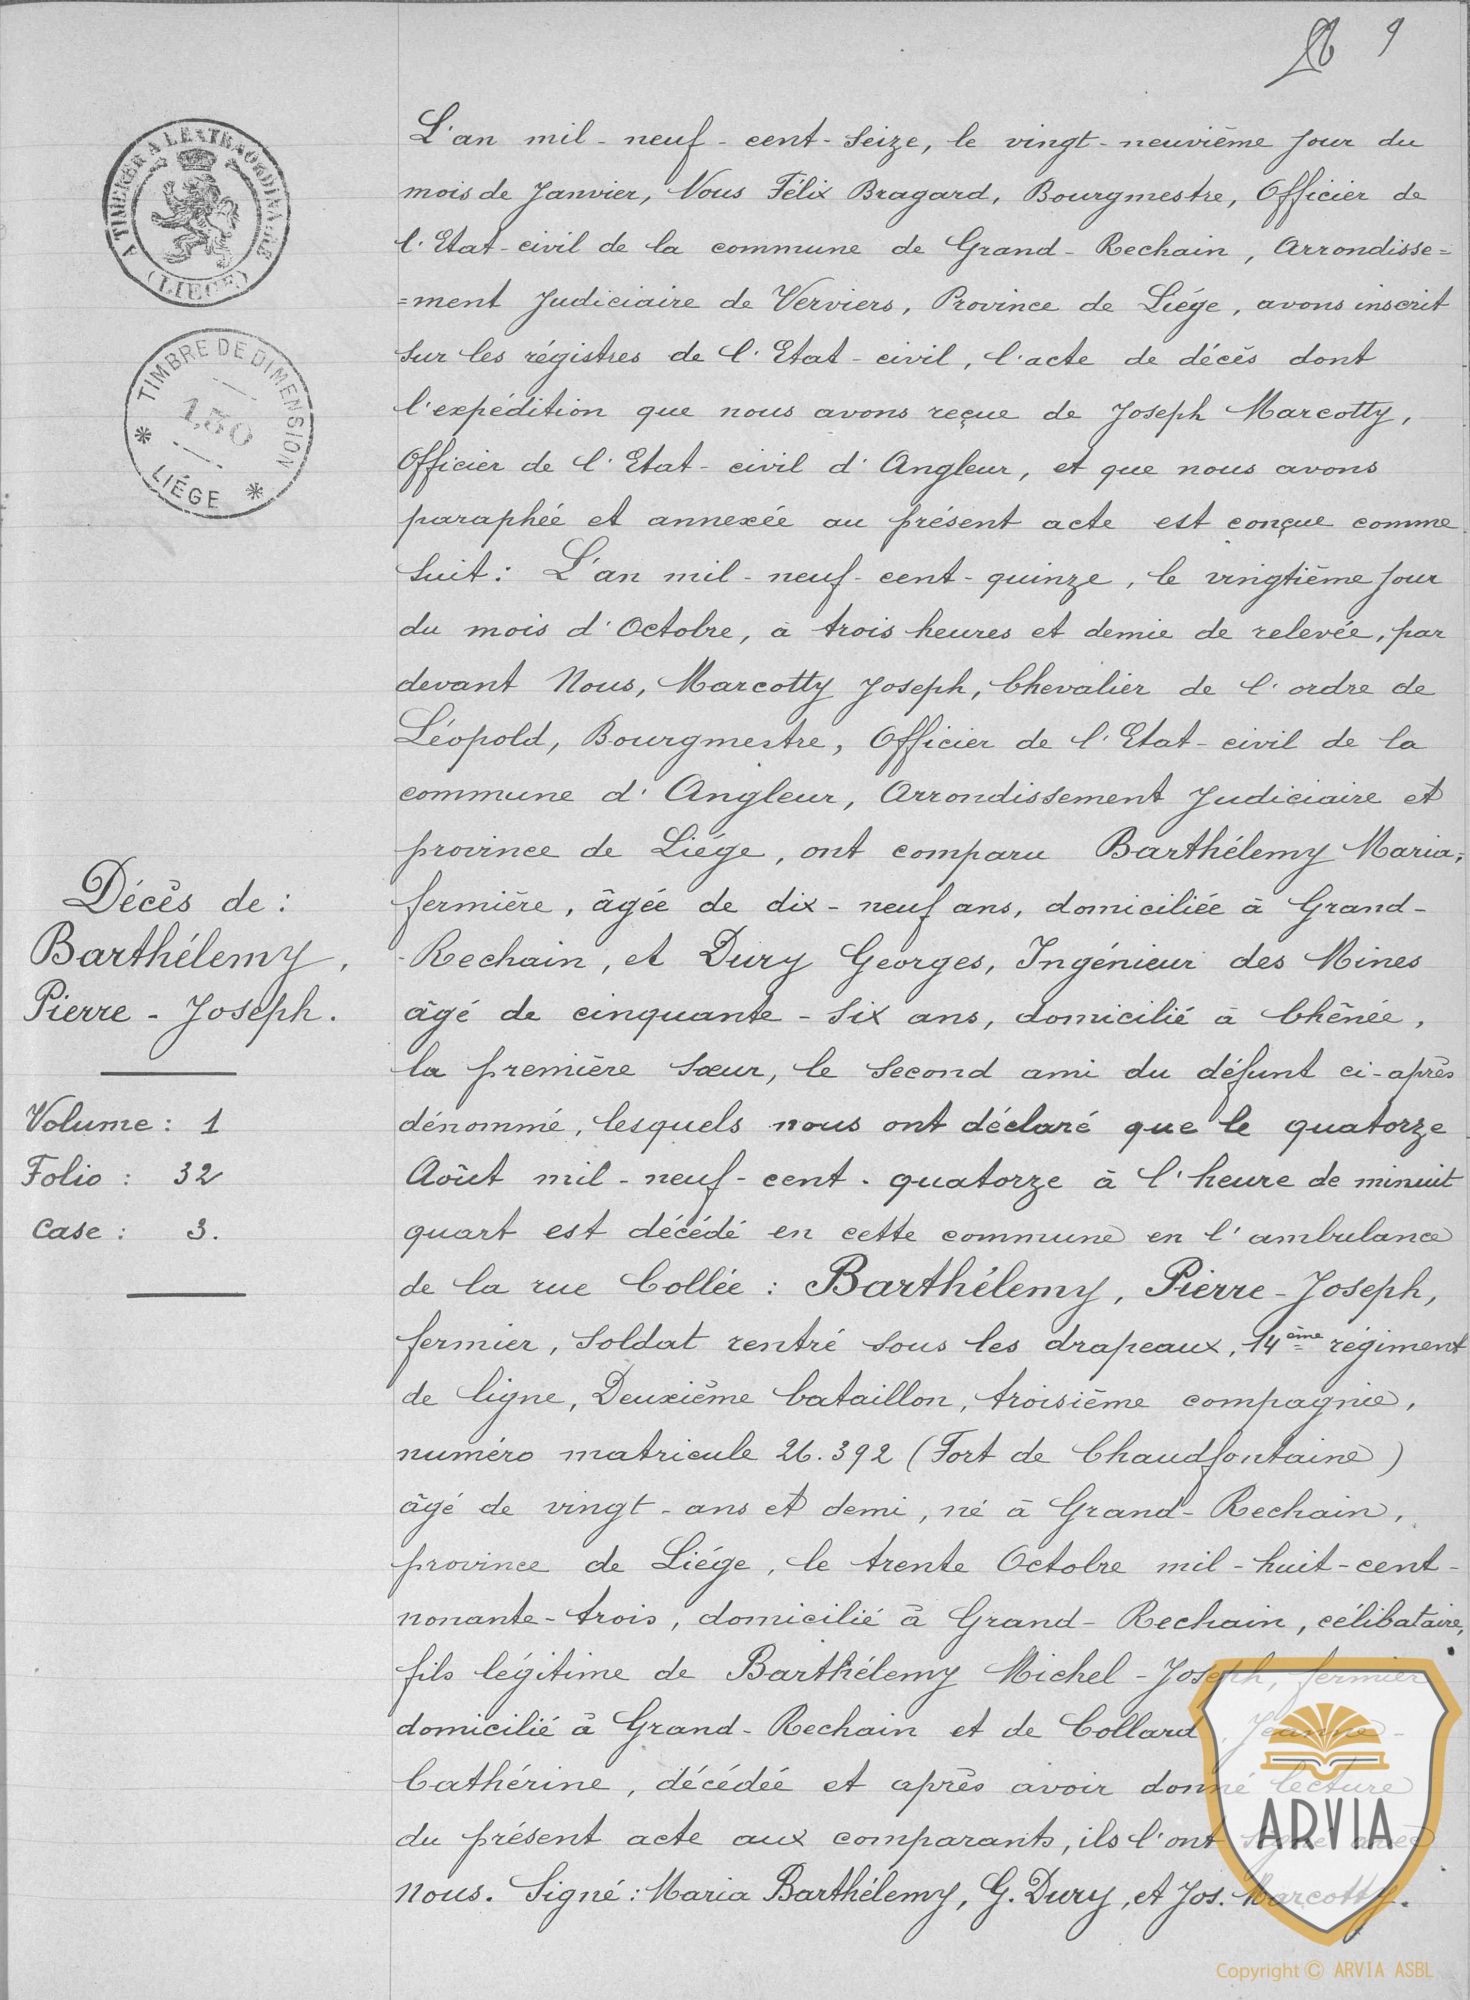 9
A TIMBRER A L'EXTRAORDINAIRE
(LIEGE)
TIMBRE DE DIMENSION
1,50
LIÉGE
L'an mil-neuf-cent-seize, le vingt-neuvième jour du
mois de Janvier, Nous Félix Bragard, Bourgmestre, Officier de
l'Etat-civil de la commune de Grand-Rechain, Arrondisse=
=ment Judiciaire de Verviers, Province de Liége, avons inscrit
sur les régistres de l'Etat-civil, l'acte de décès dont
l'expédition que nous avons reçue de Joseph Marcotty,
Officier de l'Etat-civil d'Angleur, et que nous avons
paraphée et annexée au présent acte est conçue comme
suit: L'an mil-neuf-cent-quinze, le vingtième jour
du mois d'Octobre, à trois heures et demie de relevée, par
devant Nous, Marcotty Joseph, Chevalier de l'ordre de
Léopold, Bourgmestre, Officier de l'Etat-civil de la
commune d'Angleur, Arrondissement Judiciaire et
province de Liége, ont comparu Barthélemy Maria,
fermière, âgée de dix-neuf ans, domiciliée à Grand-
-Rechain, et Dury Georges, Ingénieur des Mines
âgé de cinquante-six ans, domicilié à Chênée,
la première sœur, le second ami du défunt ci-après
dénommé, lesquels nous ont déclaré que le quatorze
Août mil-neuf-cent-quatorze à l'heure de minuit
quart est décédé en cette commune en l'ambulance
de la rue Collée: Barthélemy, Pierre-Joseph,
fermier, soldat rentré sous les drapeaux, 14ème régiment
de ligne, Deuxième bataillon, troisième compagnie,
numéro matricule 26.392 (Fort de Chaudfontaine)
âgé de vingt-ans et demi, né à Grand-Rechain,
province de Liége, le trente Octobre mil-huit-cent-
nonante-trois, domicilié à Grand-Rechain, célibataire,
fils légitime de Barthélemy Michel-Joseph, fermier
domicilié à Grand-Rechain et de Collard, Jeanne-
Cathérine, décédée et après avoir donné lecture
du présent acte aux comparants, ils l'ont signé avec
nous. Signé: Maria Barthélemy, G. Dury, et Jos. Marcotty.
Décès de:
Barthélemy,
Pierre-Joseph.
Volume: 1
Folio: 32
Case: 3.
ARVIA
Copyright © ARVIA ASBL